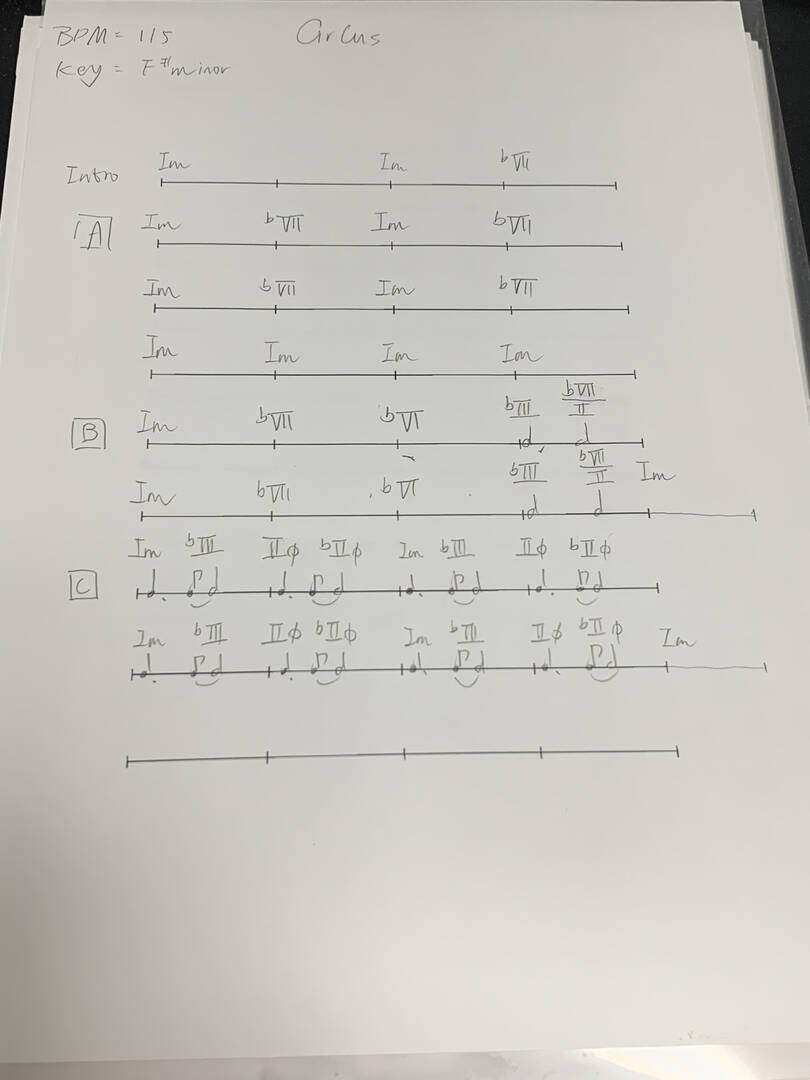 BPM = 115 Circus
Key = F#minor
Intro Im Im ♭VII
A Im ♭VII Im ♭VII
Im ♭VII Im ♭VII
Im Im Im Im
B Im ♭VII ♭VI ♭III ♭VII/II
Im ♭VII ♭VI ♭III ♭VII/II Im
C Im ♭III IIφ ♭IIφ Im ♭III IIφ ♭IIφ
Im ♭III IIφ ♭IIφ Im ♭III IIφ ♭IIφ Im